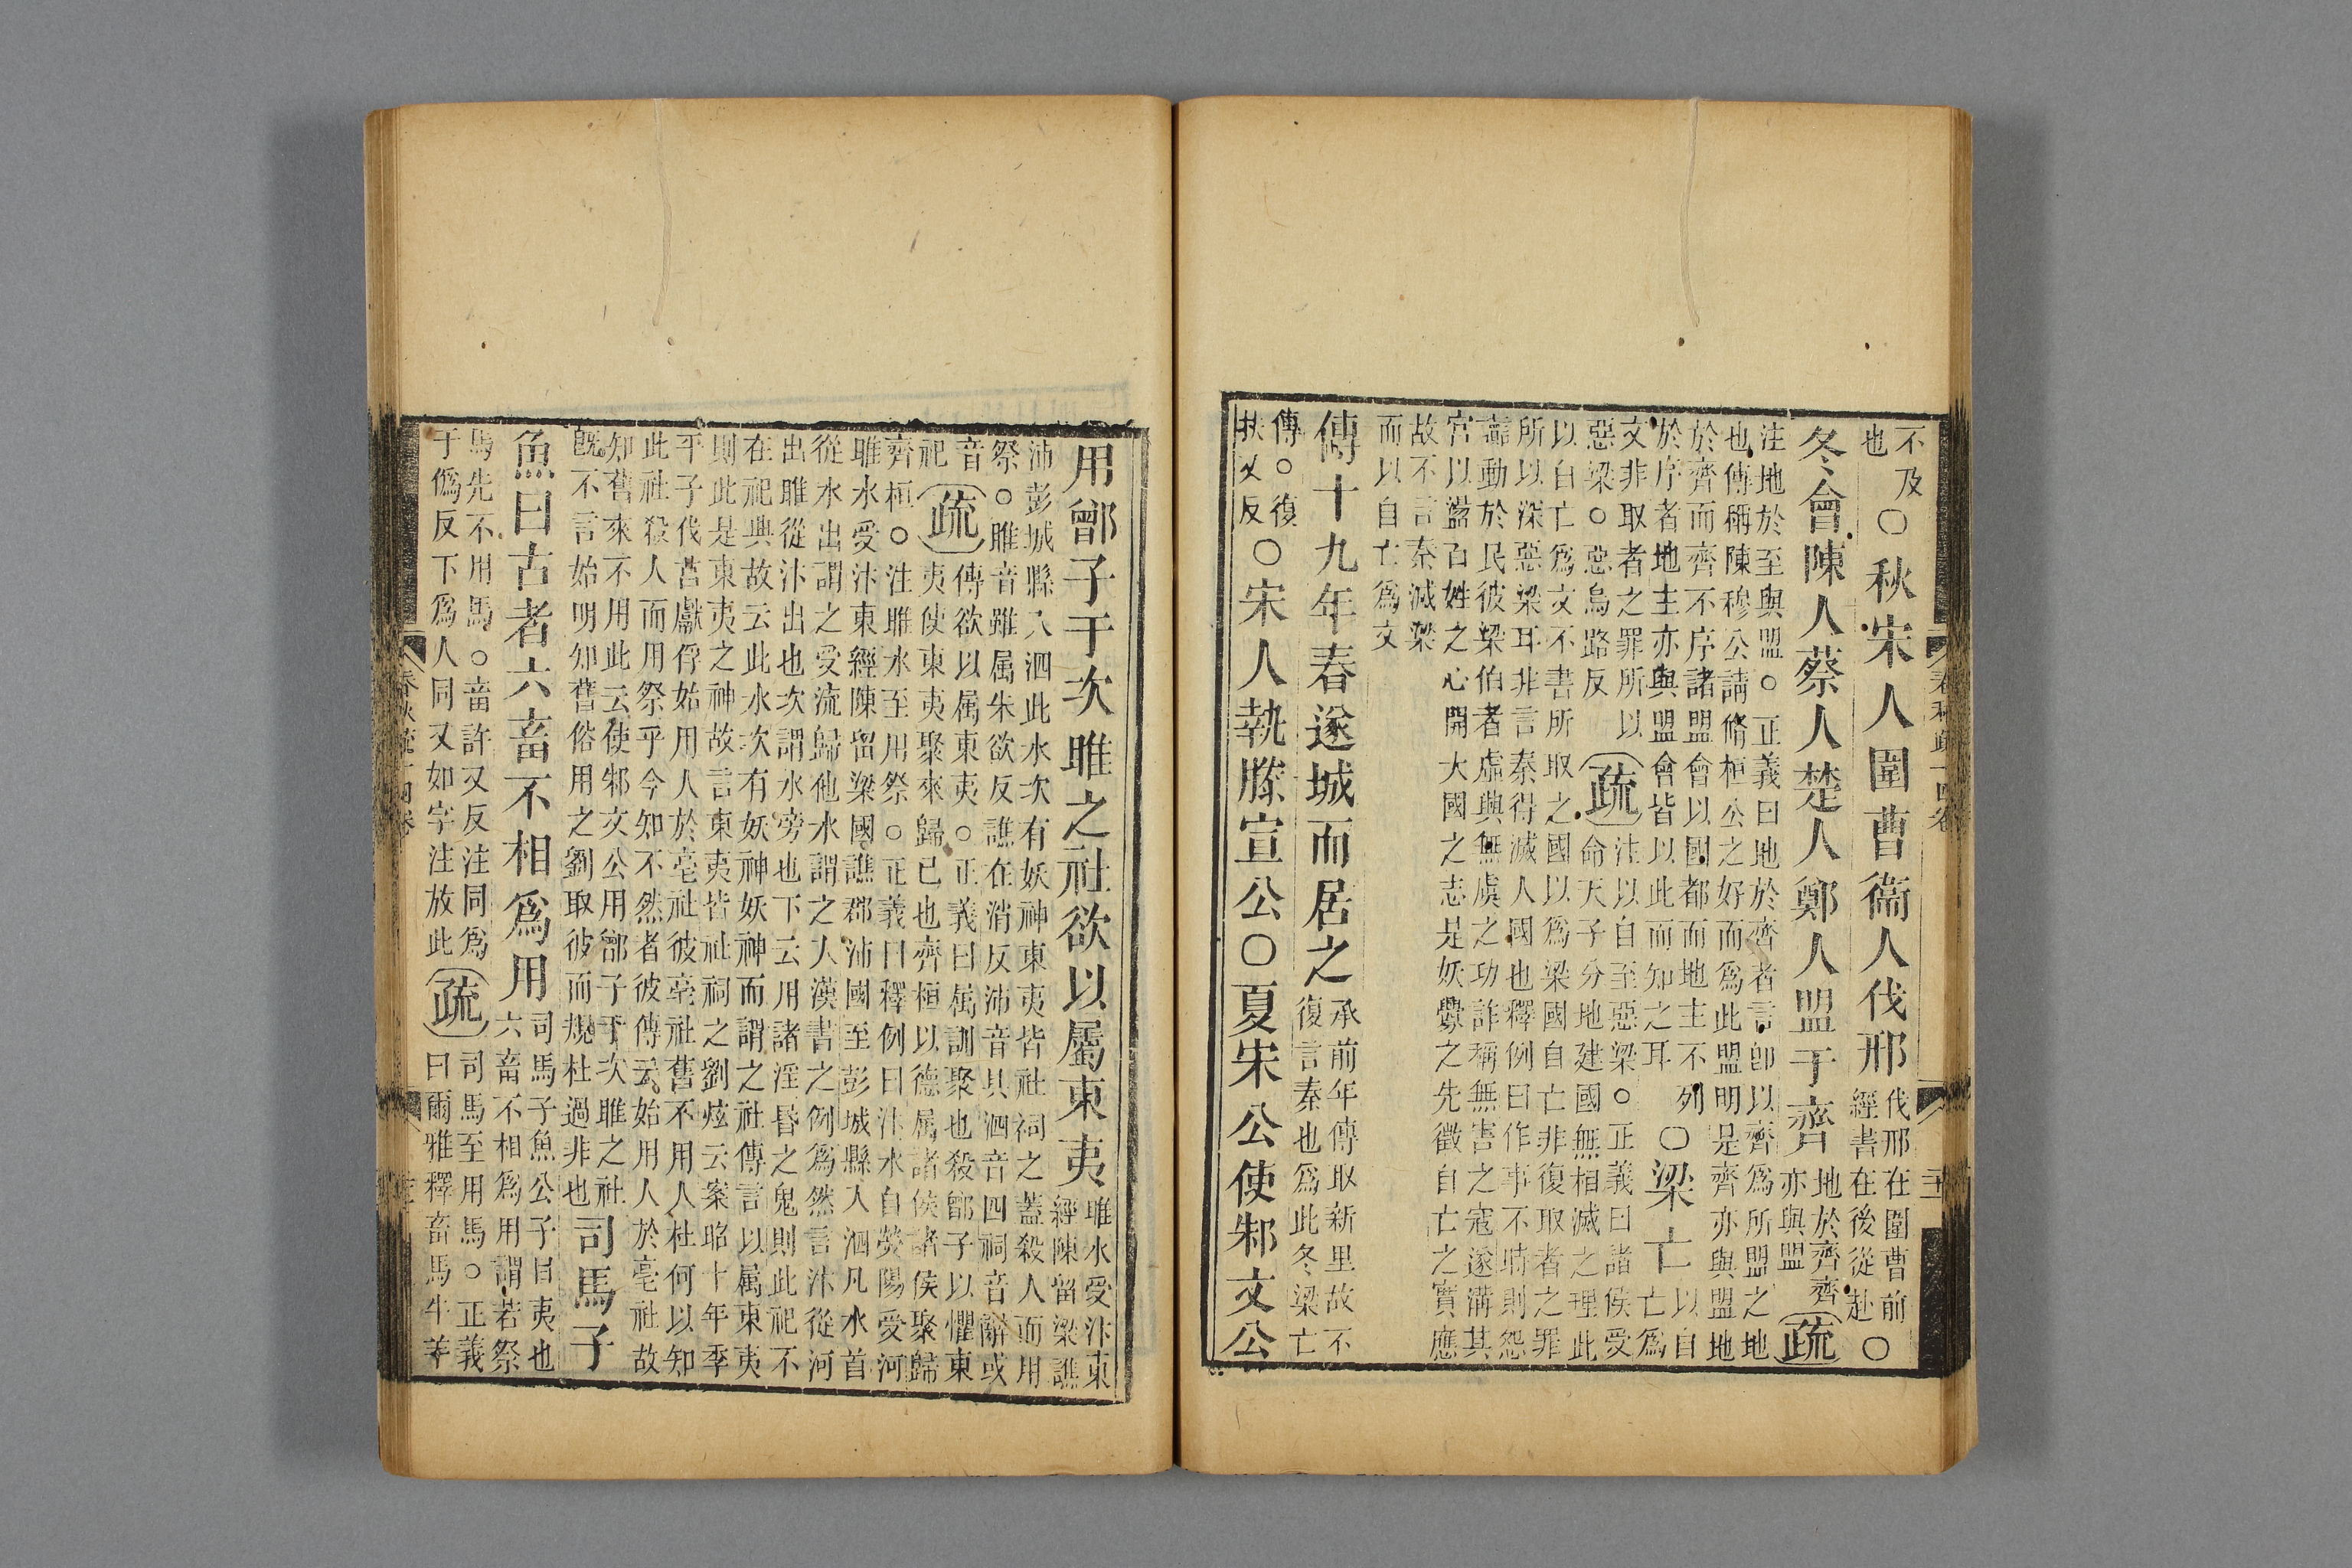 不及
也
○秋宋人圍曹衞人伐邢
伐邢在圍曹前
經書在後從赴○
冬會陳人蔡人楚人鄭人盟于齊
地於齊齊
亦與盟
疏
注地於至與盟。正義曰地於齊者言卽以齊爲所盟之地
也傳稱陳穆公請脩桓公之好而爲此盟明是齊亦與盟地
於齊而齊不序諸盟會以國都而地主不列
於序者地主亦與盟會皆以此而知之耳
○梁亡
以自
亡爲
文非取者之罪所以
惡梁。惡烏路反
疏
注以自至惡梁。正義曰諸侯受
命天子分地建國無相滅之理此
以自亡爲文不書所取之國以爲梁國自亡非復取者之罪
所以深惡梁耳非言秦得滅人國也釋例曰作事不時則怨
讟動於民彼梁伯者虛興無虞之功詐稱無害之寇遂溝其
宮以蓋百姓之心開大國之志是妖釁之先徵自亡之實應
故不言秦滅梁
而以自亡爲文
傳十九年春遂城而居之
承前年傳取新里故不
復言秦也爲此冬梁亡
傳。復
扶又反
○宋人執滕宣公○夏宋公使邾文公
用鄫子于次睢之社欲以屬東夷
睢水受汴東
經陳留梁譙
沛彭城縣入泗此水次有妖神東夷皆社祠之蓋殺人而用
祭。睢音雖属朱欲反譙在消反沛音貝泗音四祠音辭或
音
祀
疏
傳欲以属東夷。正義曰属訓聚也殺鄫子以懼東
夷使東夷聚來歸已也齊桓以德属諸侯諸侯聚歸
齊桓。注睢水至用祭。正義曰釋例曰汴水自熒陽受河
睢水受汴東經陳留梁國譙郡沛國至彭城縣入泗凡水首
從水出謂之受流歸他水謂之入漢書之例爲然言汴從河
出睢從汴出也次謂水旁也下云用諸淫昬之鬼則此祀不
在祀典故云此水次有妖神妖神而謂之社傳言以属東夷
則此是東夷之神故言東夷皆社祠之劉炫云案昭十年季
平子伐莒獻俘始用人於亳社彼亳社舊不用人杜何以知
此社殺人而用祭乎今知不然者彼傳云始用人於亳社故
知舊來不用此云使邾文公用鄫子于次睢之社
旣不言始明知舊俗用之劉取彼而規杜過非也
司馬子
魚曰古者六畜不相爲用
司馬子魚公子目夷也
六畜不相爲用謂若祭
馬先不用馬。畜許又反注同爲
于僞反下爲人同又如字注放此
疏
司馬至用馬。正義
曰爾雅釋畜馬牛羊